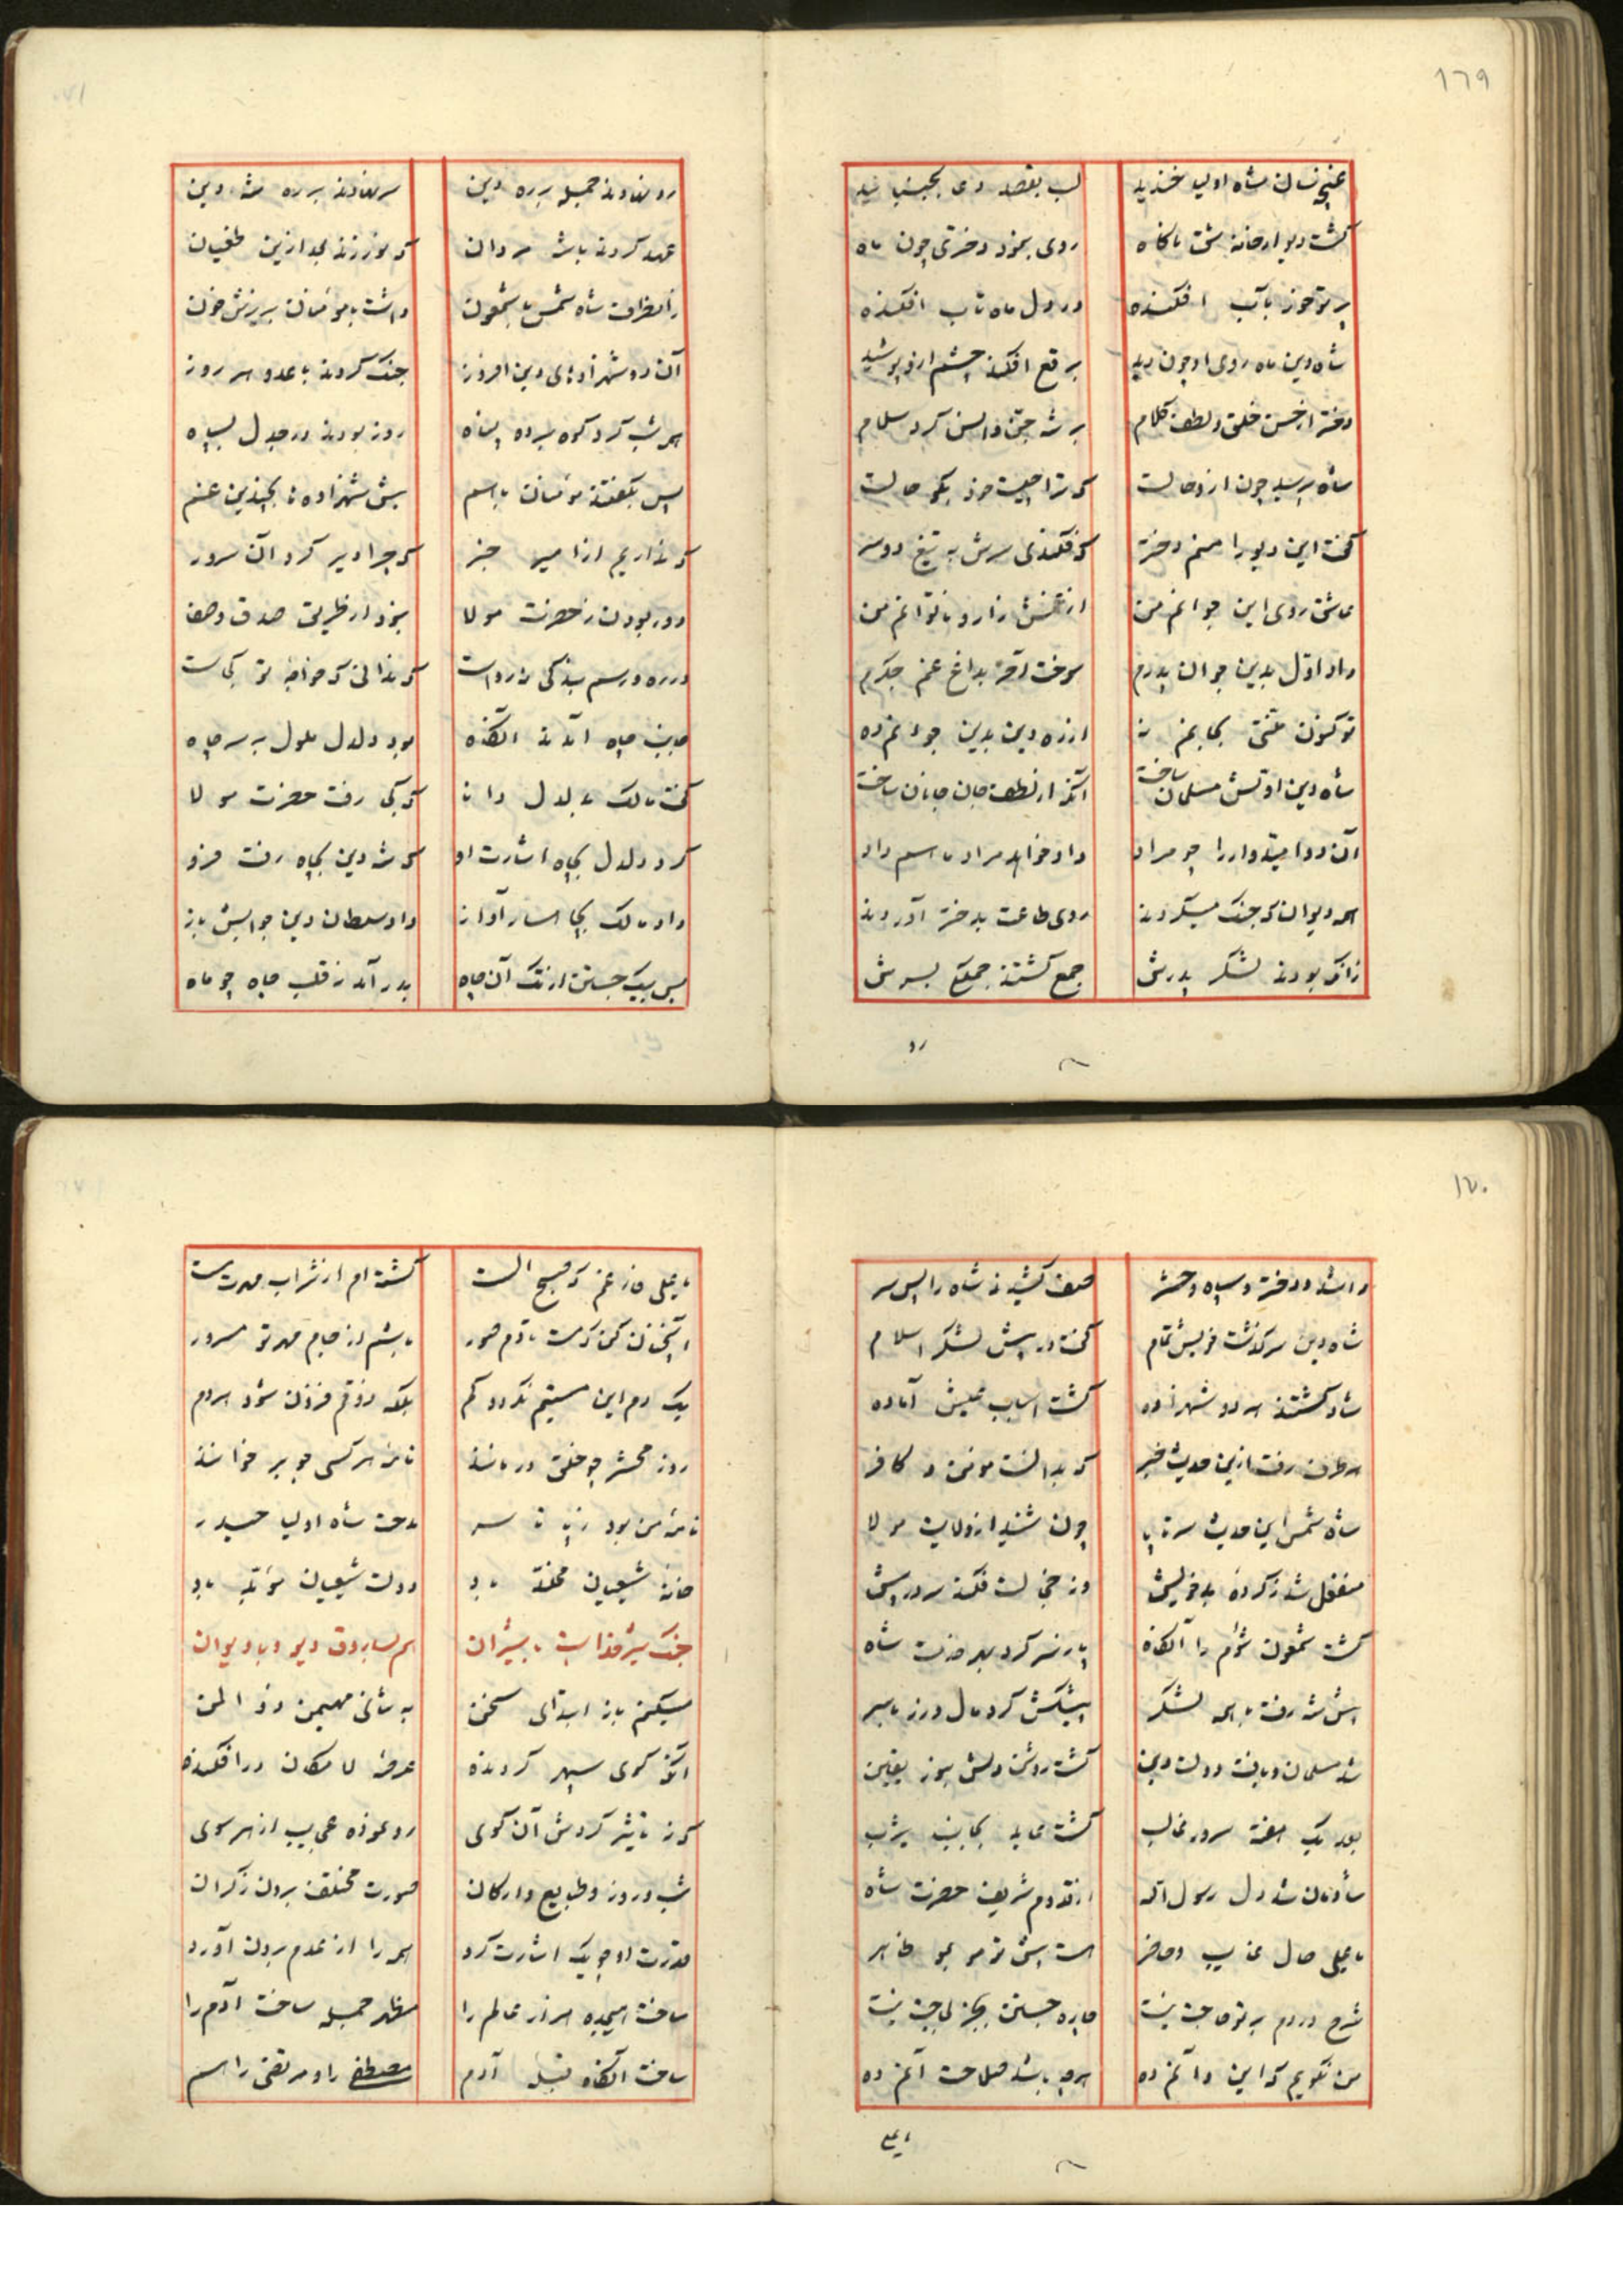 ١٦٩
غنچه‌سان شاه اولیا خندید لب بقصد دمی بجنبانید
گشت دیوار خانه شق ناگاه روی بنمود دختری چون ماه
پرتو خود بآب افکنده در دل ماه تاب افکنده
شاه دین ماه روی او چون دید برقع افکند چشم ازو پوشید
دختر از حسن خلق و لطف کلام بر شه جن و انس کرد سلام
شاه پرسید چون ازو حالت که ترا چیست خود بگو حالت
گفت این دیو را منم دختر که فکندی سرش به تیغ دو سر
عاشق روی این جوانم من از غمش زار و ناتوانم من
داد اول بدین جوان پدرم سوخت آخر بداغ غم جگرم
تو کنون منتی بجانم نه از ره دین بدین جوانم ده
شاه دین او تش مسلمان ساخت آنکه از لطف جان جانان ساخت
آن دو امیدوار را چو مراد داد خواهد مراد ما هم داد
همه دیوان که جنگ میکردند روی طاعت بدختر آوردند
زانکه بودند لشکر پدرش جمع گشتند جملگی بسرش
رو
رو نهادند جمله بر ره دین سر نهادند بر ره شه دین
عهد کردند باشه مردان که نورزند بعد ازین طغیان
زانطرف شاه شمس با شمعون داشت با مؤمنان بریزش خون
آن دو شهزادهٔ دین افروز جنگ کردند با عدو هر روز
هر شب کرد کوه برده پناه روز بودند در جدل بسپاه
پس بگفتند مؤمنان باهم پیش شهزاده‌ها بچندین غم
که نداریم از امیر خبر که چرا دیر کرد آن سرور
دور بودن ز حضرت مولا نبود از طریق صدق و صفا
در ره و رسم بندگی نه رواست که ندانی که خواجهٔ تو کجاست
جانب چاه آمدند آنگاه بود دلدل ملول بر سر چاه
گفت مالک به دلدل دانا که کجا رفت حضرت مولا
کرد دلدل بچاه اشارت او که شه دین بچاه رفت فرو
داد مالک بچاهسار آواز داد سلطان دین جوابش باز
پس بیک جستن از تک آن چاه بدر آمد ز قلب چاه چو ماه
١٧٠
داشد و دختر و سپاه و حشر صف کشیدند شاه را پس سر
شاه دین سرگذشت خویش تمام گفت در پیش لشکر اسلام
شاد گشتند هر دو شهزاده گشت اسباب عیش آماده
هر طرف رفت ازین حدیث خبر که بدانست مؤمن و کافر
شاه شمس این حدیث سر تا پا چون شنید از ولایت مولا
منفعل شد ز کردهٔ بد خویش وز خجالت فکند سر در پیش
گشت شمعون شوم را آنگاه پاره سر کرد بهر خدمت شاه
پیش شه رفت با همه لشکر پیشکش کرد مال و زر یا سر
شد مسلمان و یافت دولت دین گشت روشن دلش بنور یقین
بعد یک هفته سرور غالب گشت عاید بجانب یثرب
شادمان شد دل رسول اله از قدوم شریف حضرت شاه
یا علی حال غایب و حاضر هست پیش تو مو بمو ظاهر
شرح دردم به تو حاجت نیست چاره جستن بجز لجاجت نیست
من نگویم که این و آنم ده هر چه باشد صلاحت آنم ده
یا علی
یا علی فارغم که صبح الست گشته‌ام از شراب مهرت مست
آنچنان کن که مست تا دم صور باشم از جام مهر تو مسرور
یک دم این مستیم نگردد کم بلکه ذوقم فزون شود هر دم
روز محشر چو خلق درمانند نامهٔ هر کسی چو بر خوانند
نامهٔ من بود ز پا تا سر مدحت شاه اولیا حیدر
خانهٔ شیعیان مخلد باد دولت شیعیان مؤید باد
جنگ شیر خداست با شیران هم بساروق دیو و با دیوان
میکنم باز ابتدای سخن به ثنای مهیمن ذو المن
آنکه گوی سپهر گردنده عرصهٔ لامکان در افکنده
که ز تاثیر گردش آن گوی رو نموده عجایب از هر سوی
شب و روز و طبایع و ارکان صورت مختلف برون ز کران
قدرت او چو یک اشارت کرد همه را از عدم برون آورد
ساخت هیجده هزار عالم را مظهر جمله ساخت آدم را
ساخت آنگاه قبل آدم مصطفی را و مرتضی را هم